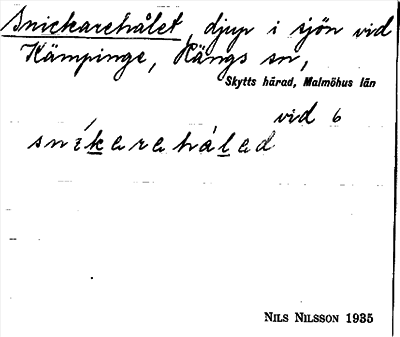 Snickarehålet, djup i sjön vid
Kämpinge, Kängs sn,
Skytts härad, Malmöhus län
vid 6
snikarahålad
NILS NILSSON 1935